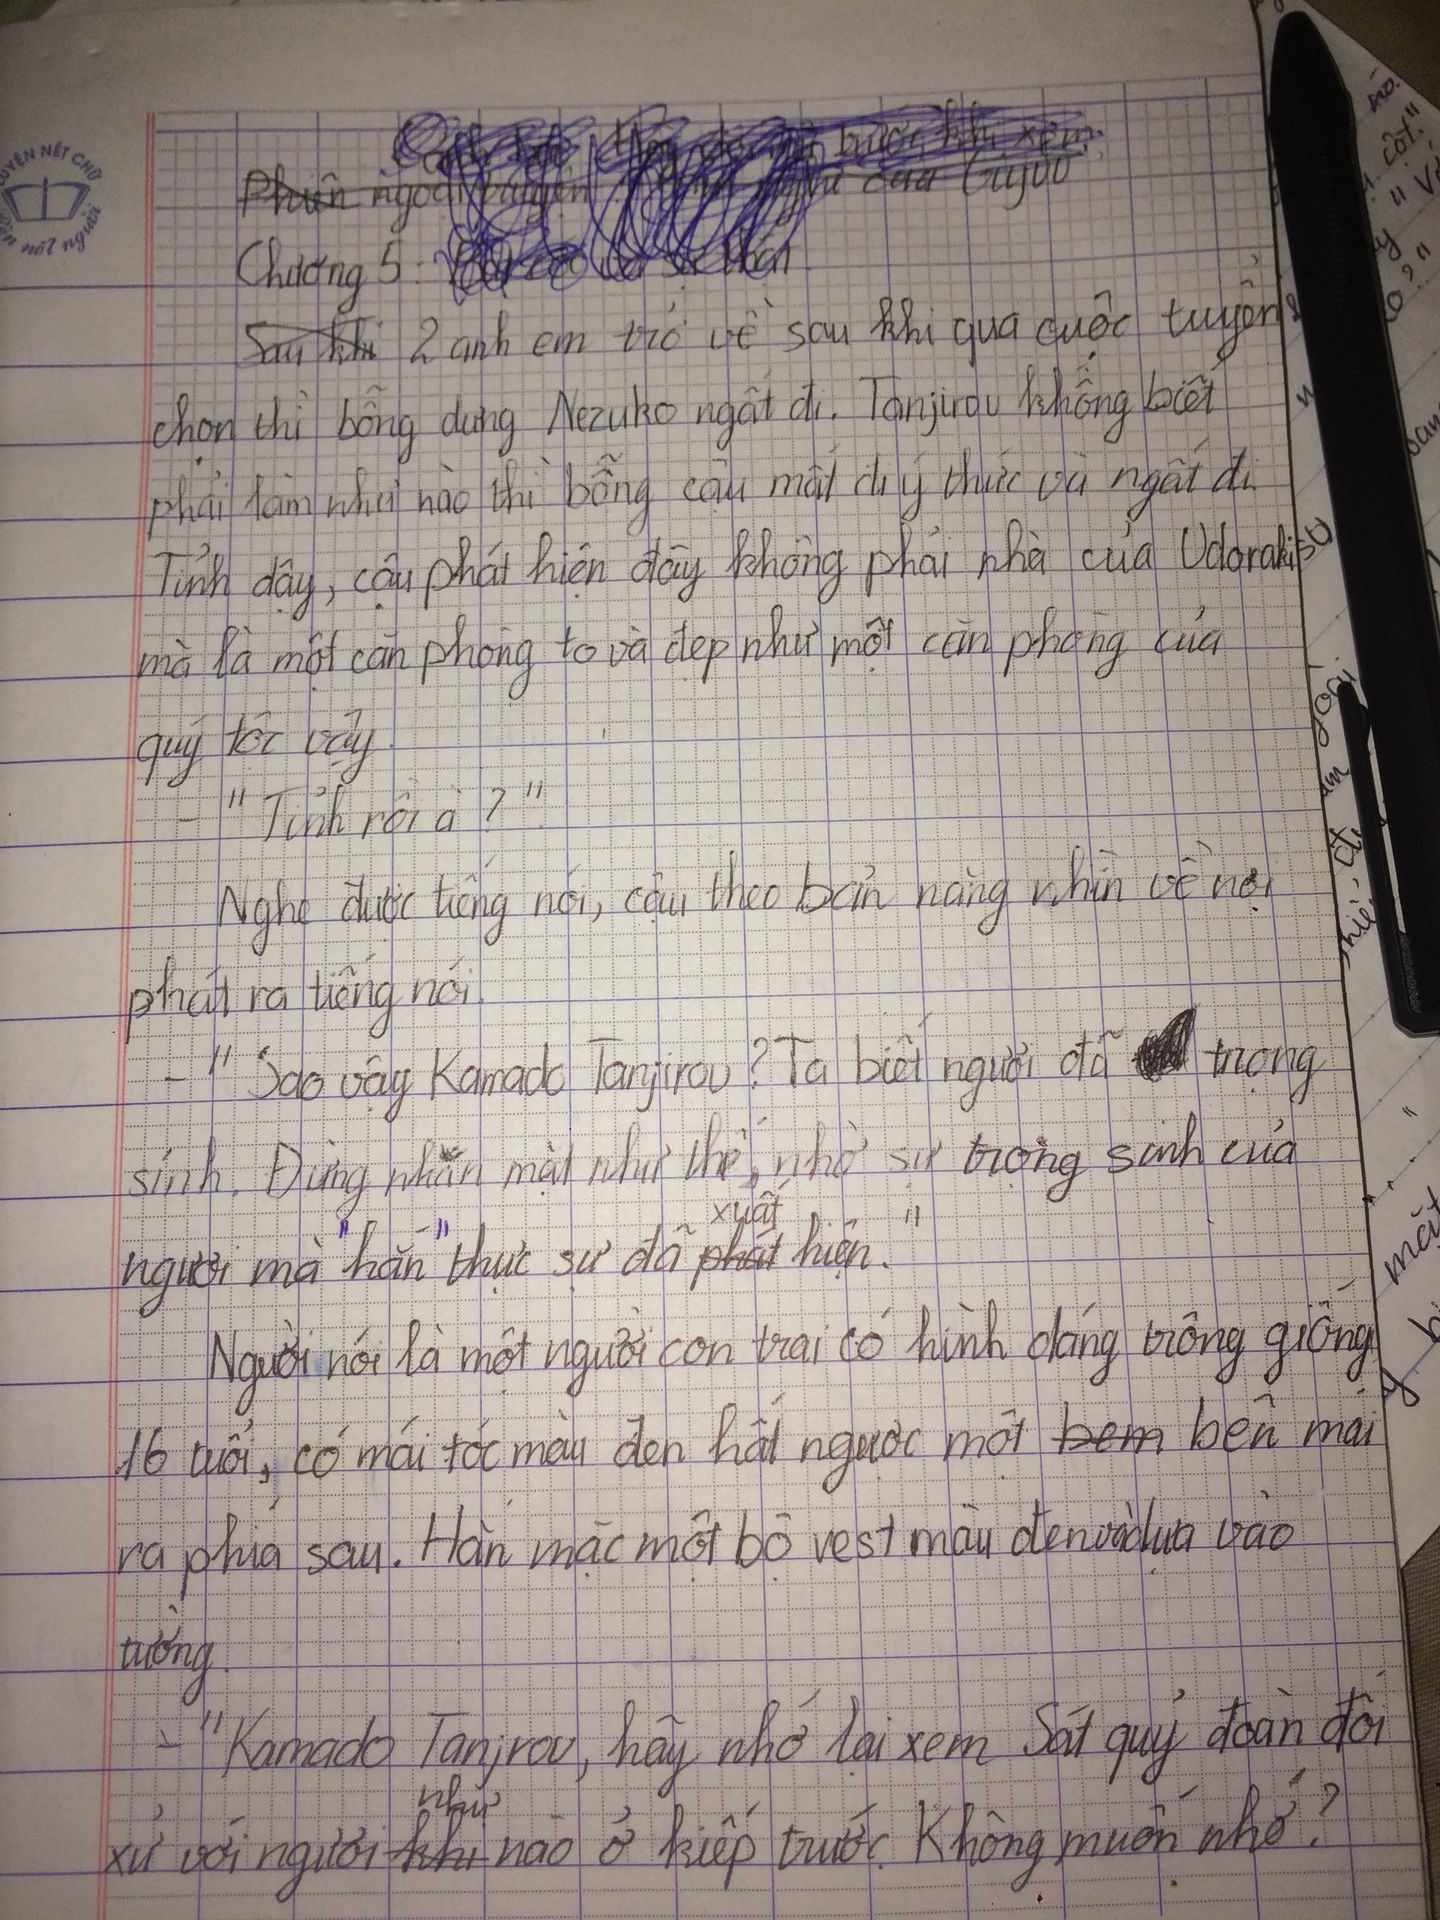 LUYỆN NÉT CHỮ
nết người
Phiên ngoại của Giyuu
trước khi xem
Chương 5:
Sau khi 2 anh em trở về sau khi qua cuộc tuyển
chọn thì bỗng dưng Nezuko ngất đi. Tanjirou không biết
phải làm như nào thì bỗng cậu mất đi ý thức và ngất đi.
Tỉnh dậy, cậu phát hiện đây không phải nhà của Udorakisu
mà là một căn phòng to và đẹp như một căn phòng của
quý tộc vậy.
- "Tỉnh rồi à?".
Nghe được tiếng nói, cậu theo bản năng nhìn về nơi
phát ra tiếng nói.
- "Sao vậy Kamado Tanjirou? Ta biết ngươi đã trọng
sinh. Đừng nhăn mặt như thế, nhờ sự trọng sinh của
xuất
ngươi mà "hắn" thực sự đã phát hiện."
Người nói là một người con trai có hình dáng trông giống
16 tuổi, có mái tóc màu đen hất ngược một bem bên mái
ra phía sau. Hắn mặc một bộ vest màu đen và dựa vào
tường.
- "Kamado Tanjrou, hãy nhớ lại xem Sát quỷ đoàn đối
như
xử với ngươi khi nào ở kiếp trước. Không muốn nhớ?